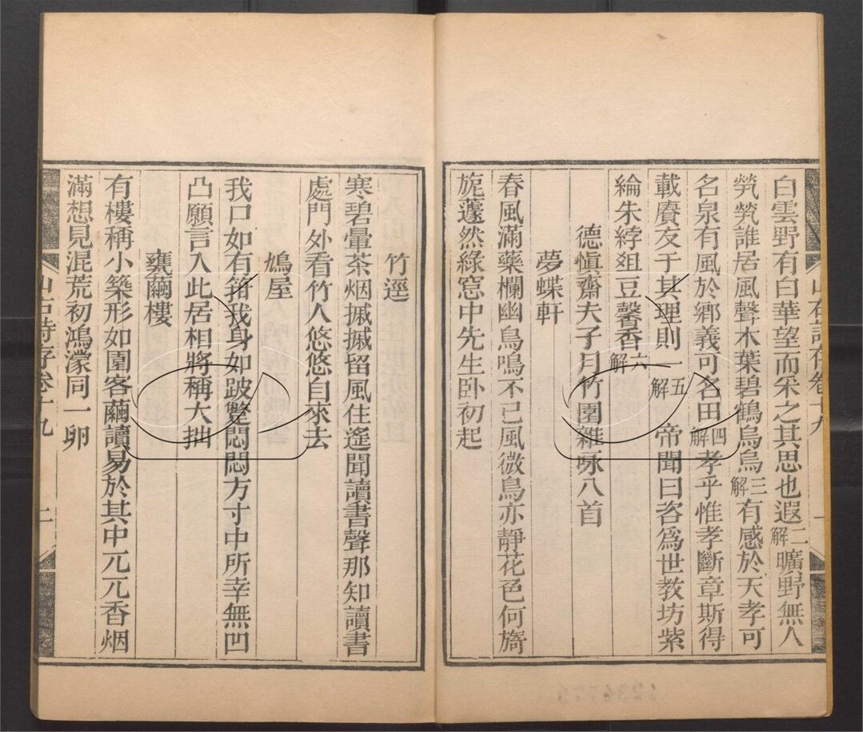 白雲野有白華望而采之其思也遐二解曠野無人
煢煢誰居風聲木葉碧鶴烏烏三解有感於天孝可
名泉有風於鄉義可名田四解孝乎惟孝斷章斯得
載賡友于其理則一五解帝聞曰咨爲世教坊紫
綸朱綍俎豆馨香六解
德愼齋夫子月竹園雜咏八首
夢蝶軒
春風滿藥欄幽鳥鳴不已風微鳥亦靜花色何旖
旎蘧然綠窓中先生卧初起
竹逕
寒碧暈茶烟摵摵留風住遙聞讀書聲那知讀書
處門外看竹人悠悠自來去
鳩屋
我口如有箝我身如跛躄悶悶方寸中所幸無凹
凸願言入此居相將稱大拙
甕繭樓
有樓稱小築形如圍客繭讀易於其中元元香烟
滿想見混荒初鴻濛同一卵
山右詩存卷十九
二